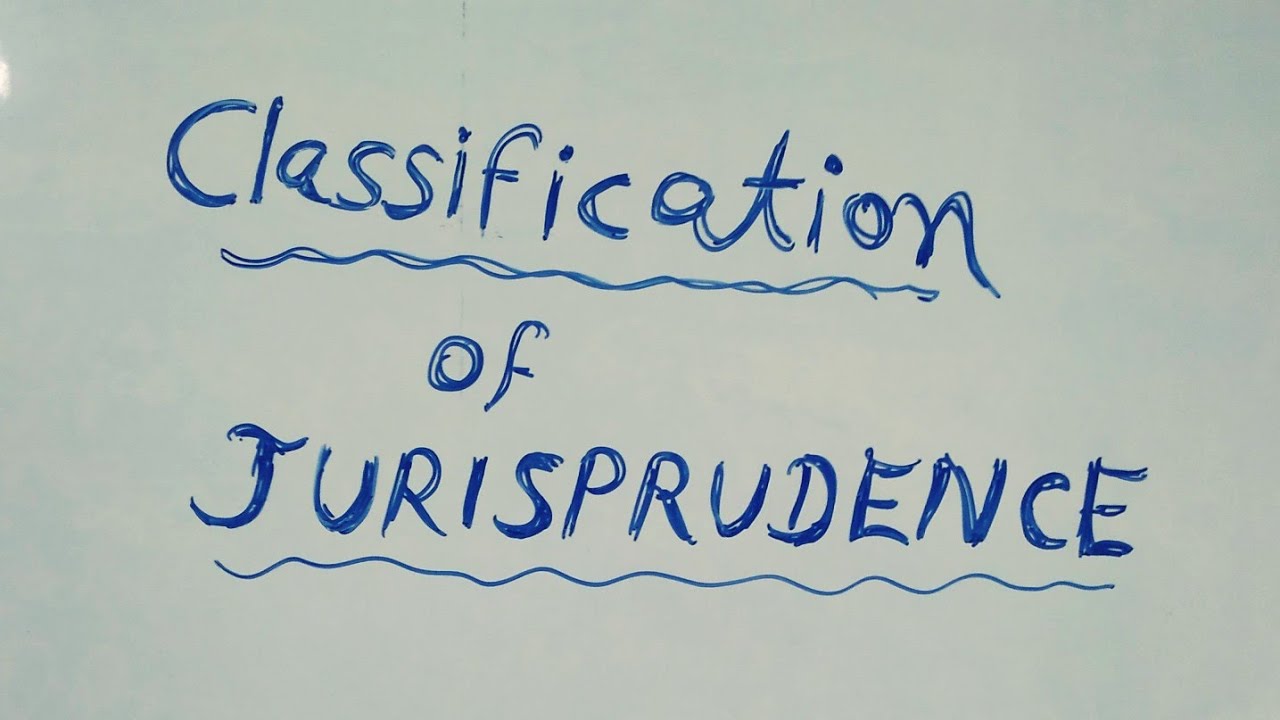 Classification
of
JURISPRUDENCE